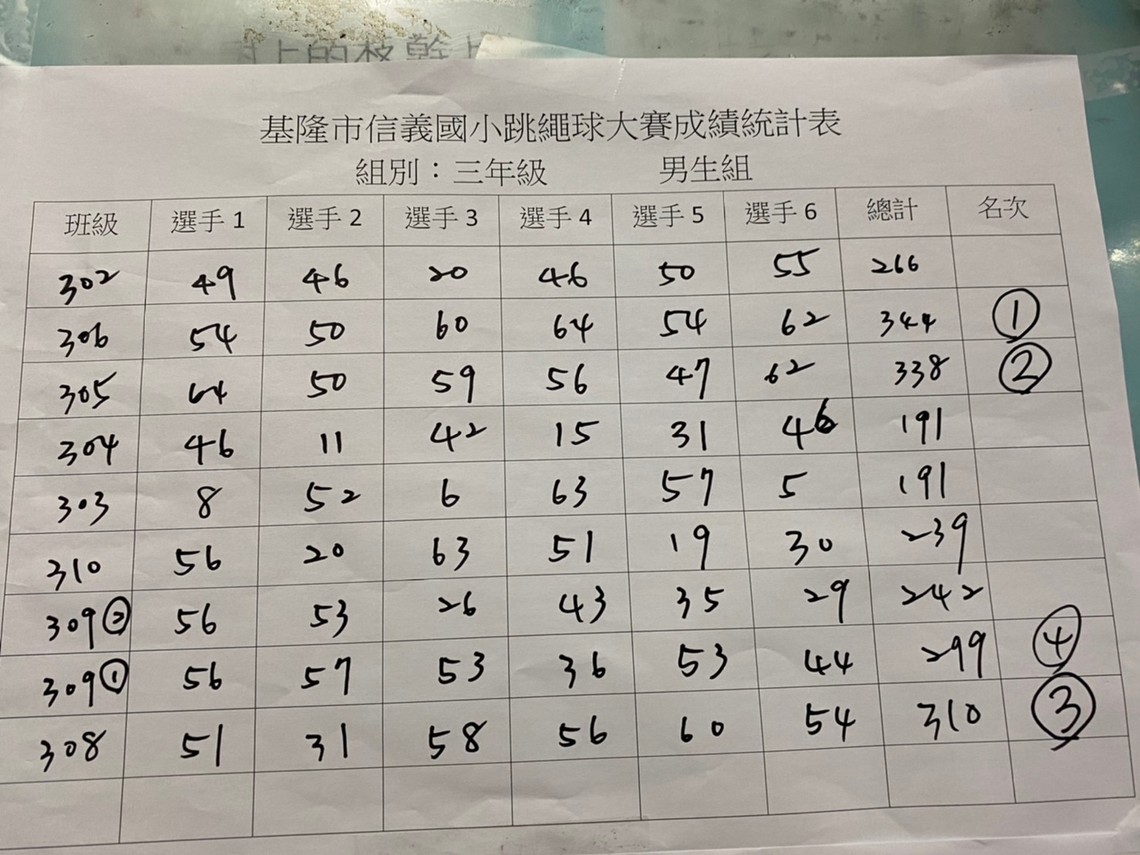 上的枝幹上
基隆市信義國小跳繩球大賽成績統計表
組別：三年級 男生組
班級 選手1 選手2 選手3 選手4 選手5 選手6 總計 名次
302 49 46 20 46 50 55 266
306 54 50 60 64 54 62 344 ①
305 64 50 59 56 47 62 338 ②
304 46 11 42 15 31 46 191
303 8 52 6 63 57 5 191
310 56 20 63 51 19 30 239
309② 56 53 26 43 35 29 242
309① 56 57 53 36 53 44 299 ④
308 51 31 58 56 60 54 310 ③